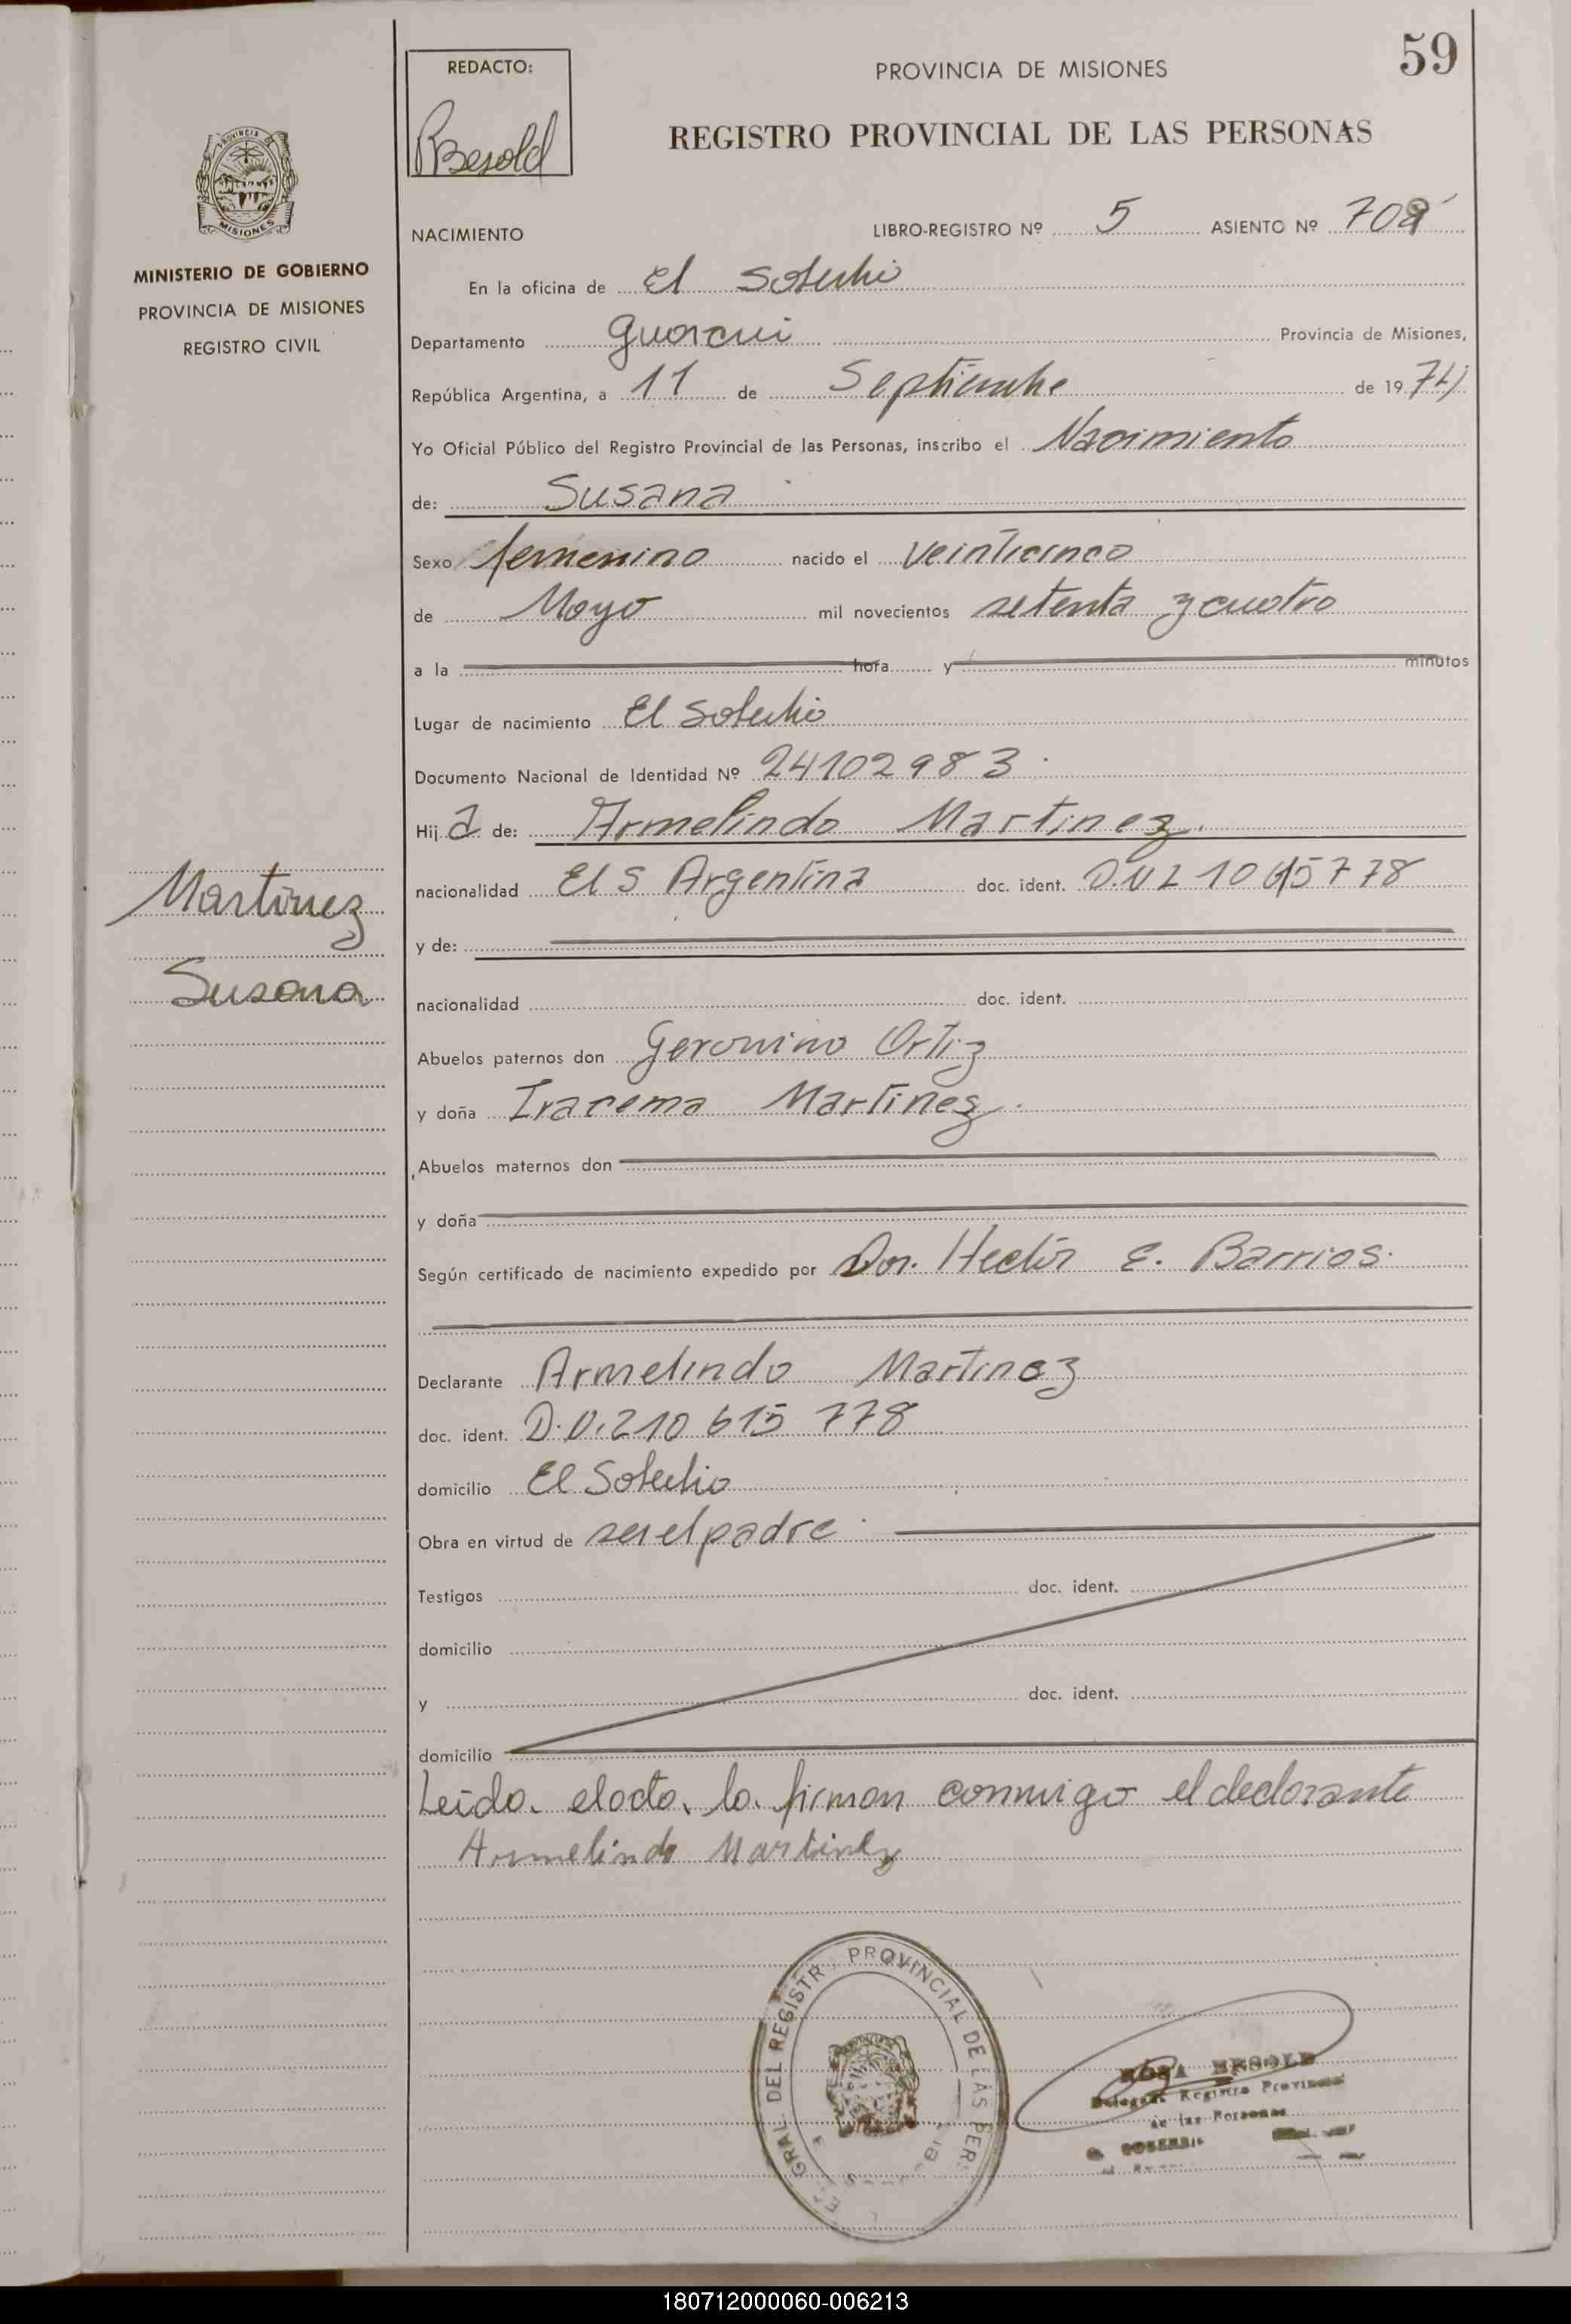 59
REDACTO:
RBesold
PROVINCIA DE MISIONES
REGISTRO PROVINCIAL DE LAS PERSONAS
PROVINCIA DE
MISIONES
MINISTERIO DE GOBIERNO
PROVINCIA DE MISIONES
REGISTRO CIVIL
NACIMIENTO LIBRO-REGISTRO Nº 5 ASIENTO Nº 709
En la oficina de El Soberbio
Departamento Guarani Provincia de Misiones,
República Argentina, a 11 de Septiembre de 1974
Yo Oficial Público del Registro Provincial de las Personas, inscribo el Nacimiento
de: Susana
Sexo femenino nacido el veinticinco
de Mayo mil novecientos setenta y cuatro
a la hora y minutos
Lugar de nacimiento El Soberbio
Documento Nacional de Identidad Nº 24102983
Hija de: Armelindo Martinez
nacionalidad El S Argentina doc. ident. D.N I 10615778
y de:
nacionalidad doc. ident.
Martinez
Susana
Abuelos paternos don Geronimo Ortiz
y doña Iracema Martinez
Abuelos maternos don
y doña
Según certificado de nacimiento expedido por Dor. Hector E. Barrios
Declarante Armelindo Martinez
doc. ident. D.N.I 10 615 778
domicilio El Soberbio
Obra en virtud de ser el padre
Testigos doc. ident.
domicilio
y doc. ident.
domicilio
Leido el acto, lo firman conmigo el declarante
Armelindo Martinez
GRAL. DEL REGISTR. PROVINCIAL DE LAS PER
ROSA BESOLD
Delegada Registro Provincial
de las Personas
SOBERBIO
180712000060-006213